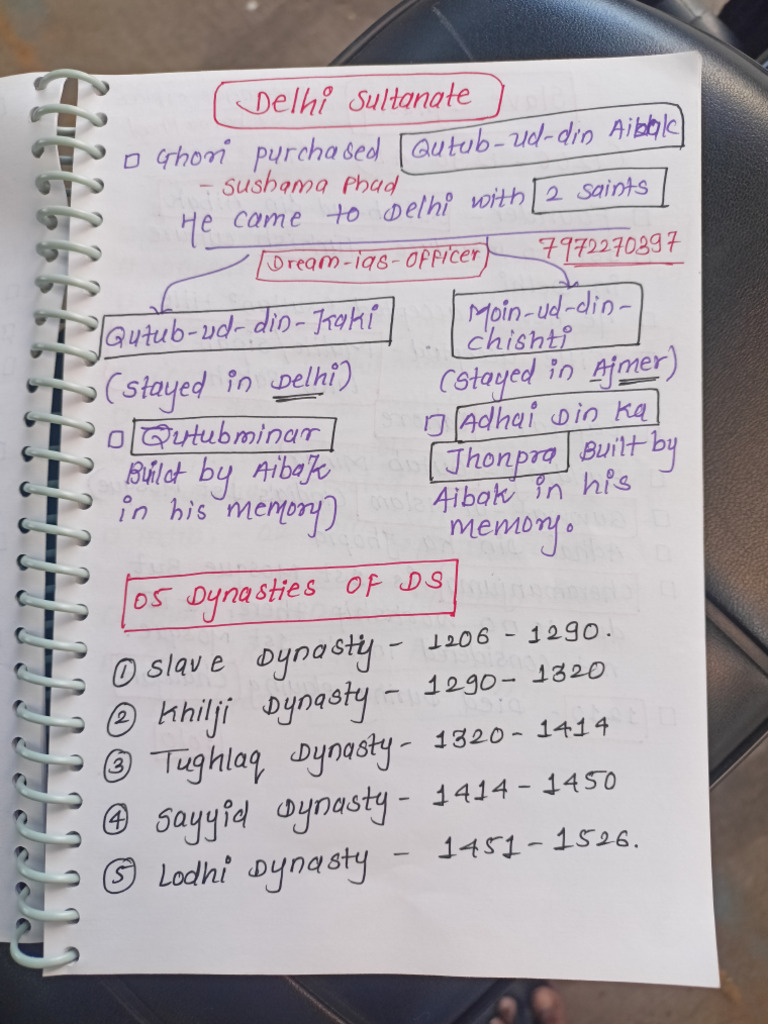 Delhi Sultanate
Ghori purchased Qutub-ud-din Aibak
- Sushama Phad
He came to Delhi with 2 saints
Dream-ias-officer
7972270397
Qutub-ud-din-Kaki
(Stayed in Delhi)
Qutubminar
Built by Aibak
in his memory)
Moin-ud-din-
chishti
(Stayed in Ajmer)
Adhai Din Ka
Jhonpra Built by
Aibak in his
memory.
05 Dynasties OF DS
① Slave Dynasty - 1206 - 1290.
② Khilji Dynasty - 1290 - 1320
③ Tughlaq Dynasty - 1320 - 1414
④ Sayyid Dynasty - 1414 - 1450
⑤ Lodhi Dynasty - 1451 - 1526.